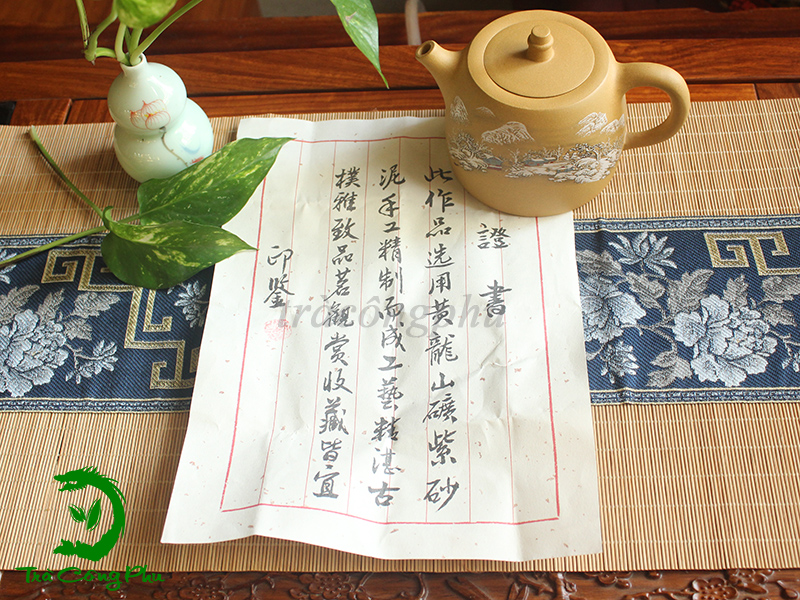 證書
此作品选用黄龍山礦紫砂
泥手工精制而成工藝精湛古
樸雅致品茗觀赏收藏皆宜
印鑒
trà công phu
Trà Công Phu